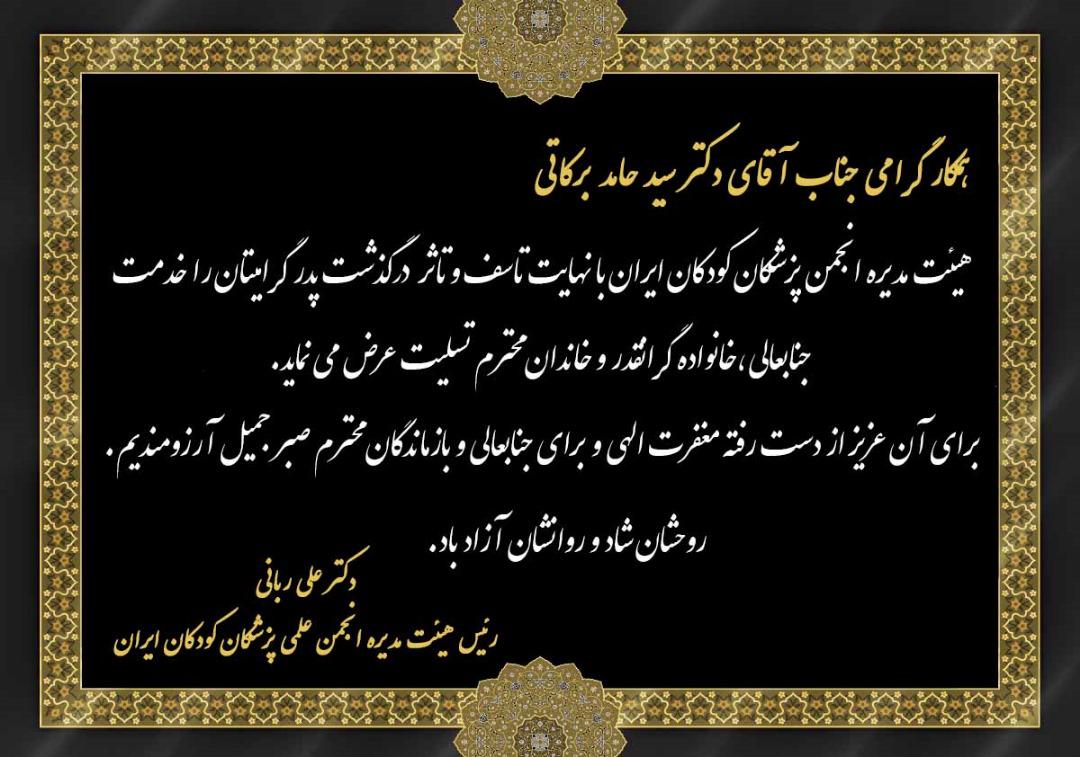 همکار گرامی جناب آقای دکتر سید حامد برکاتی
هیئت مدیره انجمن پزشکان کودکان ایران با نهایت تاسف و تاثر درگذشت پدر گرامیتان را خدمت
جنابعالی، خانواده گرانقدر و خاندان محترم تسلیت عرض می نماید.
برای آن عزیز از دست رفته مغفرت الهی و برای جنابعالی و بازماندگان محترم صبر جمیل آرزومندیم .
روحشان شاد و روانشان آزاد باد.
دکتر علی ربانی
رئیس هیئت مدیره انجمن علمی پزشکان کودکان ایران